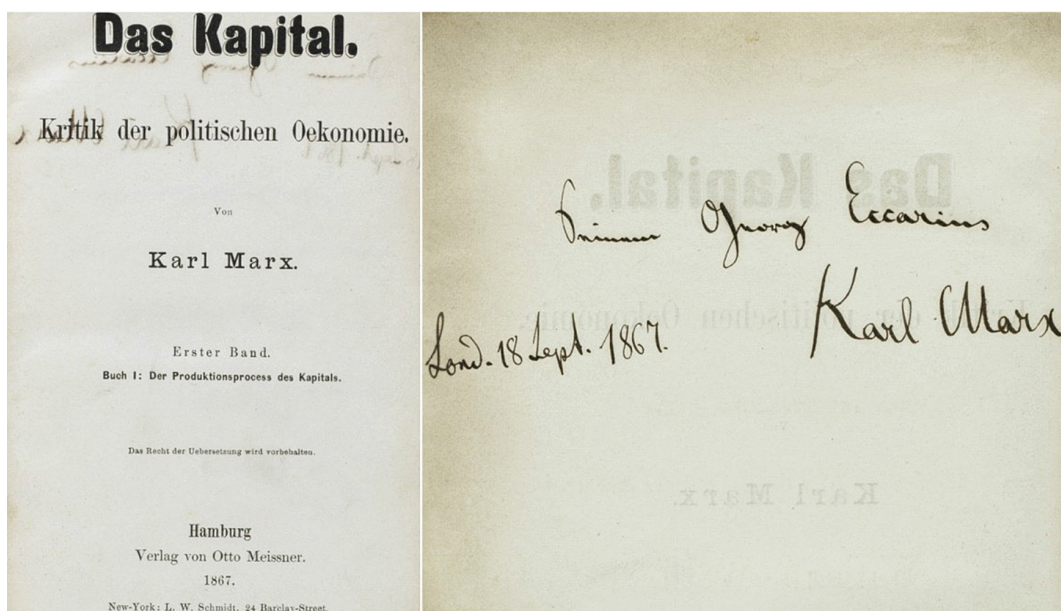 Das Kapital.
Kritik der politischen Oekonomie.
Von
Karl Marx.
Erster Band.
Buch I: Der Produktionsprocess des Kapitals.
Das Recht der Uebersetzung wird vorbehalten.
Hamburg
Verlag von Otto Meissner.
1867.
New-York: L. W. Schmidt. 24 Barclay-Street.
Seinem Georg Eccarius
Karl Marx
Lond. 18 Sept. 1867.